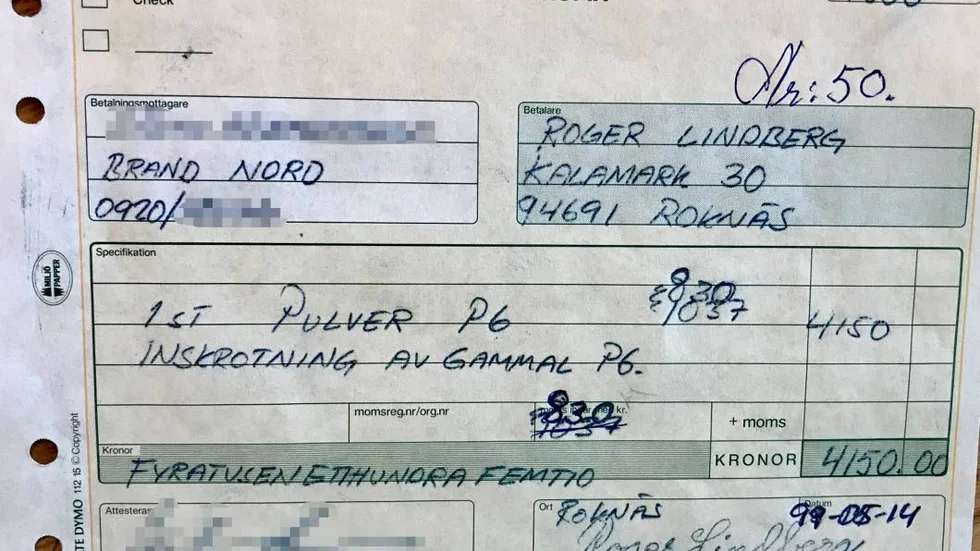 Check
Nr: 50.
Betalningsmottagare
BRAND NORD
0920/
Betalare
ROGER LINDBERG
KALAMARK 30
94691 ROKNÄS
MILJÖ PAPPER
Specifikation
830
1037
1 ST PULVER P6 4150
INSKROTNING AV GAMMAL P6.
momsreg.nr/org.nr kr.
830
1037
+ moms
Kronor
FYRATUSENETTHUNDRA FEMTIO
KRONOR 4150.00
Attesteras
Ort
ROKNÄS
Datum
99-05-14
Roger Lindberg
DYMO 112 15 © Copyright